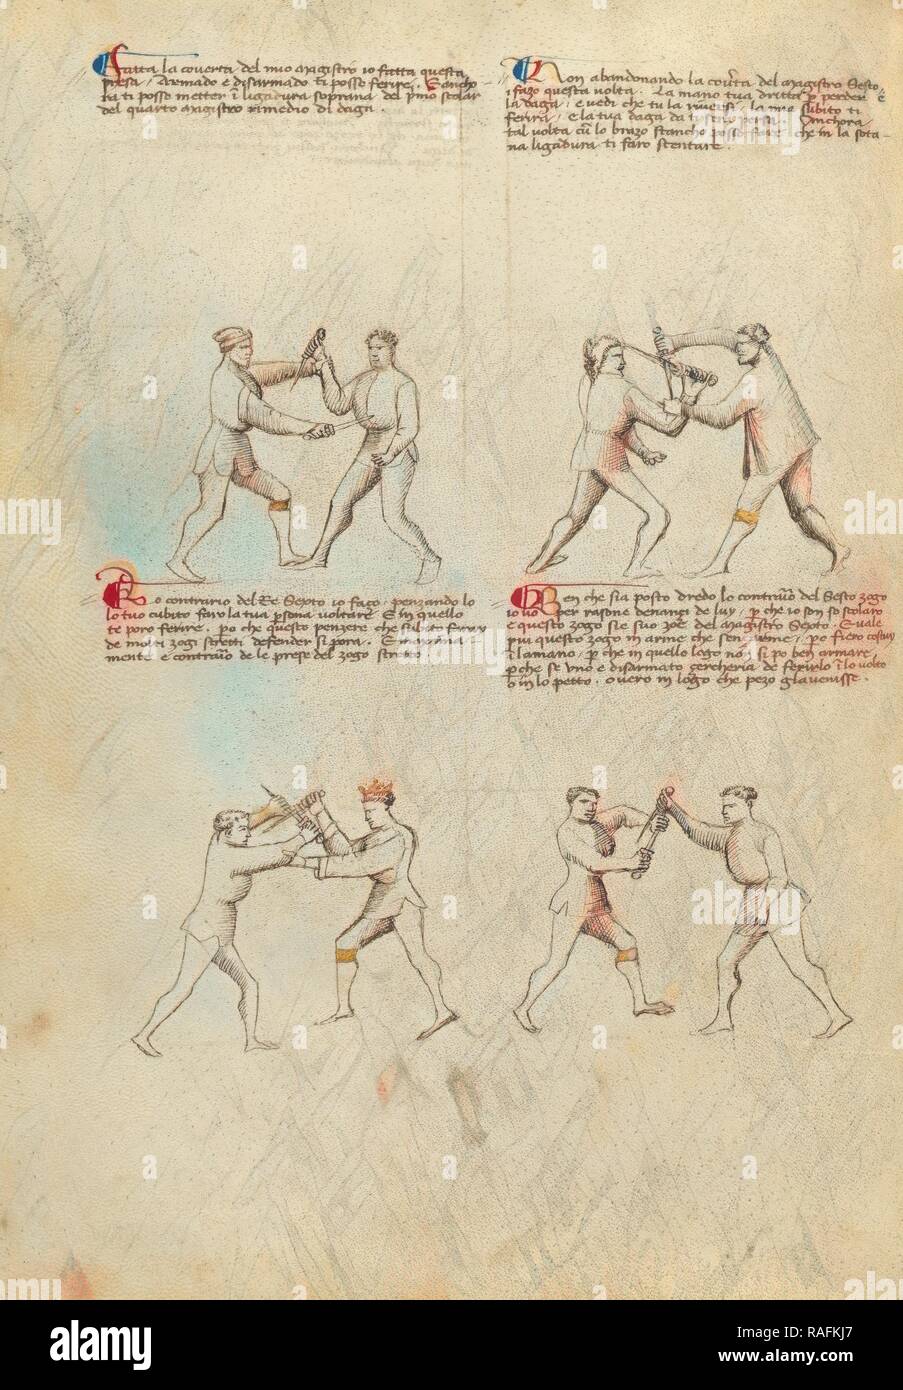 Fatta la coverta del mio magistro io fatta questa
presa. Armado e disarmado ti posso ferire. E ancho
ra ti posso metter i ligadura soprana del pmo scolar
del quarto magistro rimedio di daga
Non abandonando la coṽta del magistro Sesto
i fazo questa volta. La mano tua dritta p perder è
la daga. e vedi che tu la riversi. la mia subito ti
ferira. e la tua daga da ti sera persa. Anchora
tal volta cũ lo brazo stancho posso fare che in la sota
na ligadura ti faro stentare.
Lo contrario del Re Sexto io faço. penzando lo
lo tuo cubito faro la tua psona voltare. E in quello
te poro ferire. po che questo penzere che subito faroy
de molti zogi stretti defender si pora. E maximi
mente e contrario de le prese del zogo stretto.
Ben che sia posto dredo lo contrario del Sesto zogo
io vo per rasone denançi de luy. p che io son so scolaro
e questo zogo sie suo zoe del magistro Sexto. E vale
piu questo zogo in arme che sença arme. po fiero costuy
i la mano. p che in quello logo non si po ben armare
p che se uno e disarmato çercheria de ferirlo i lo volto
o in lo petto. overo in logo che pezo glavenisse.
alamy
a
alamy stock photo
RAFKJ7
www.alamy.com